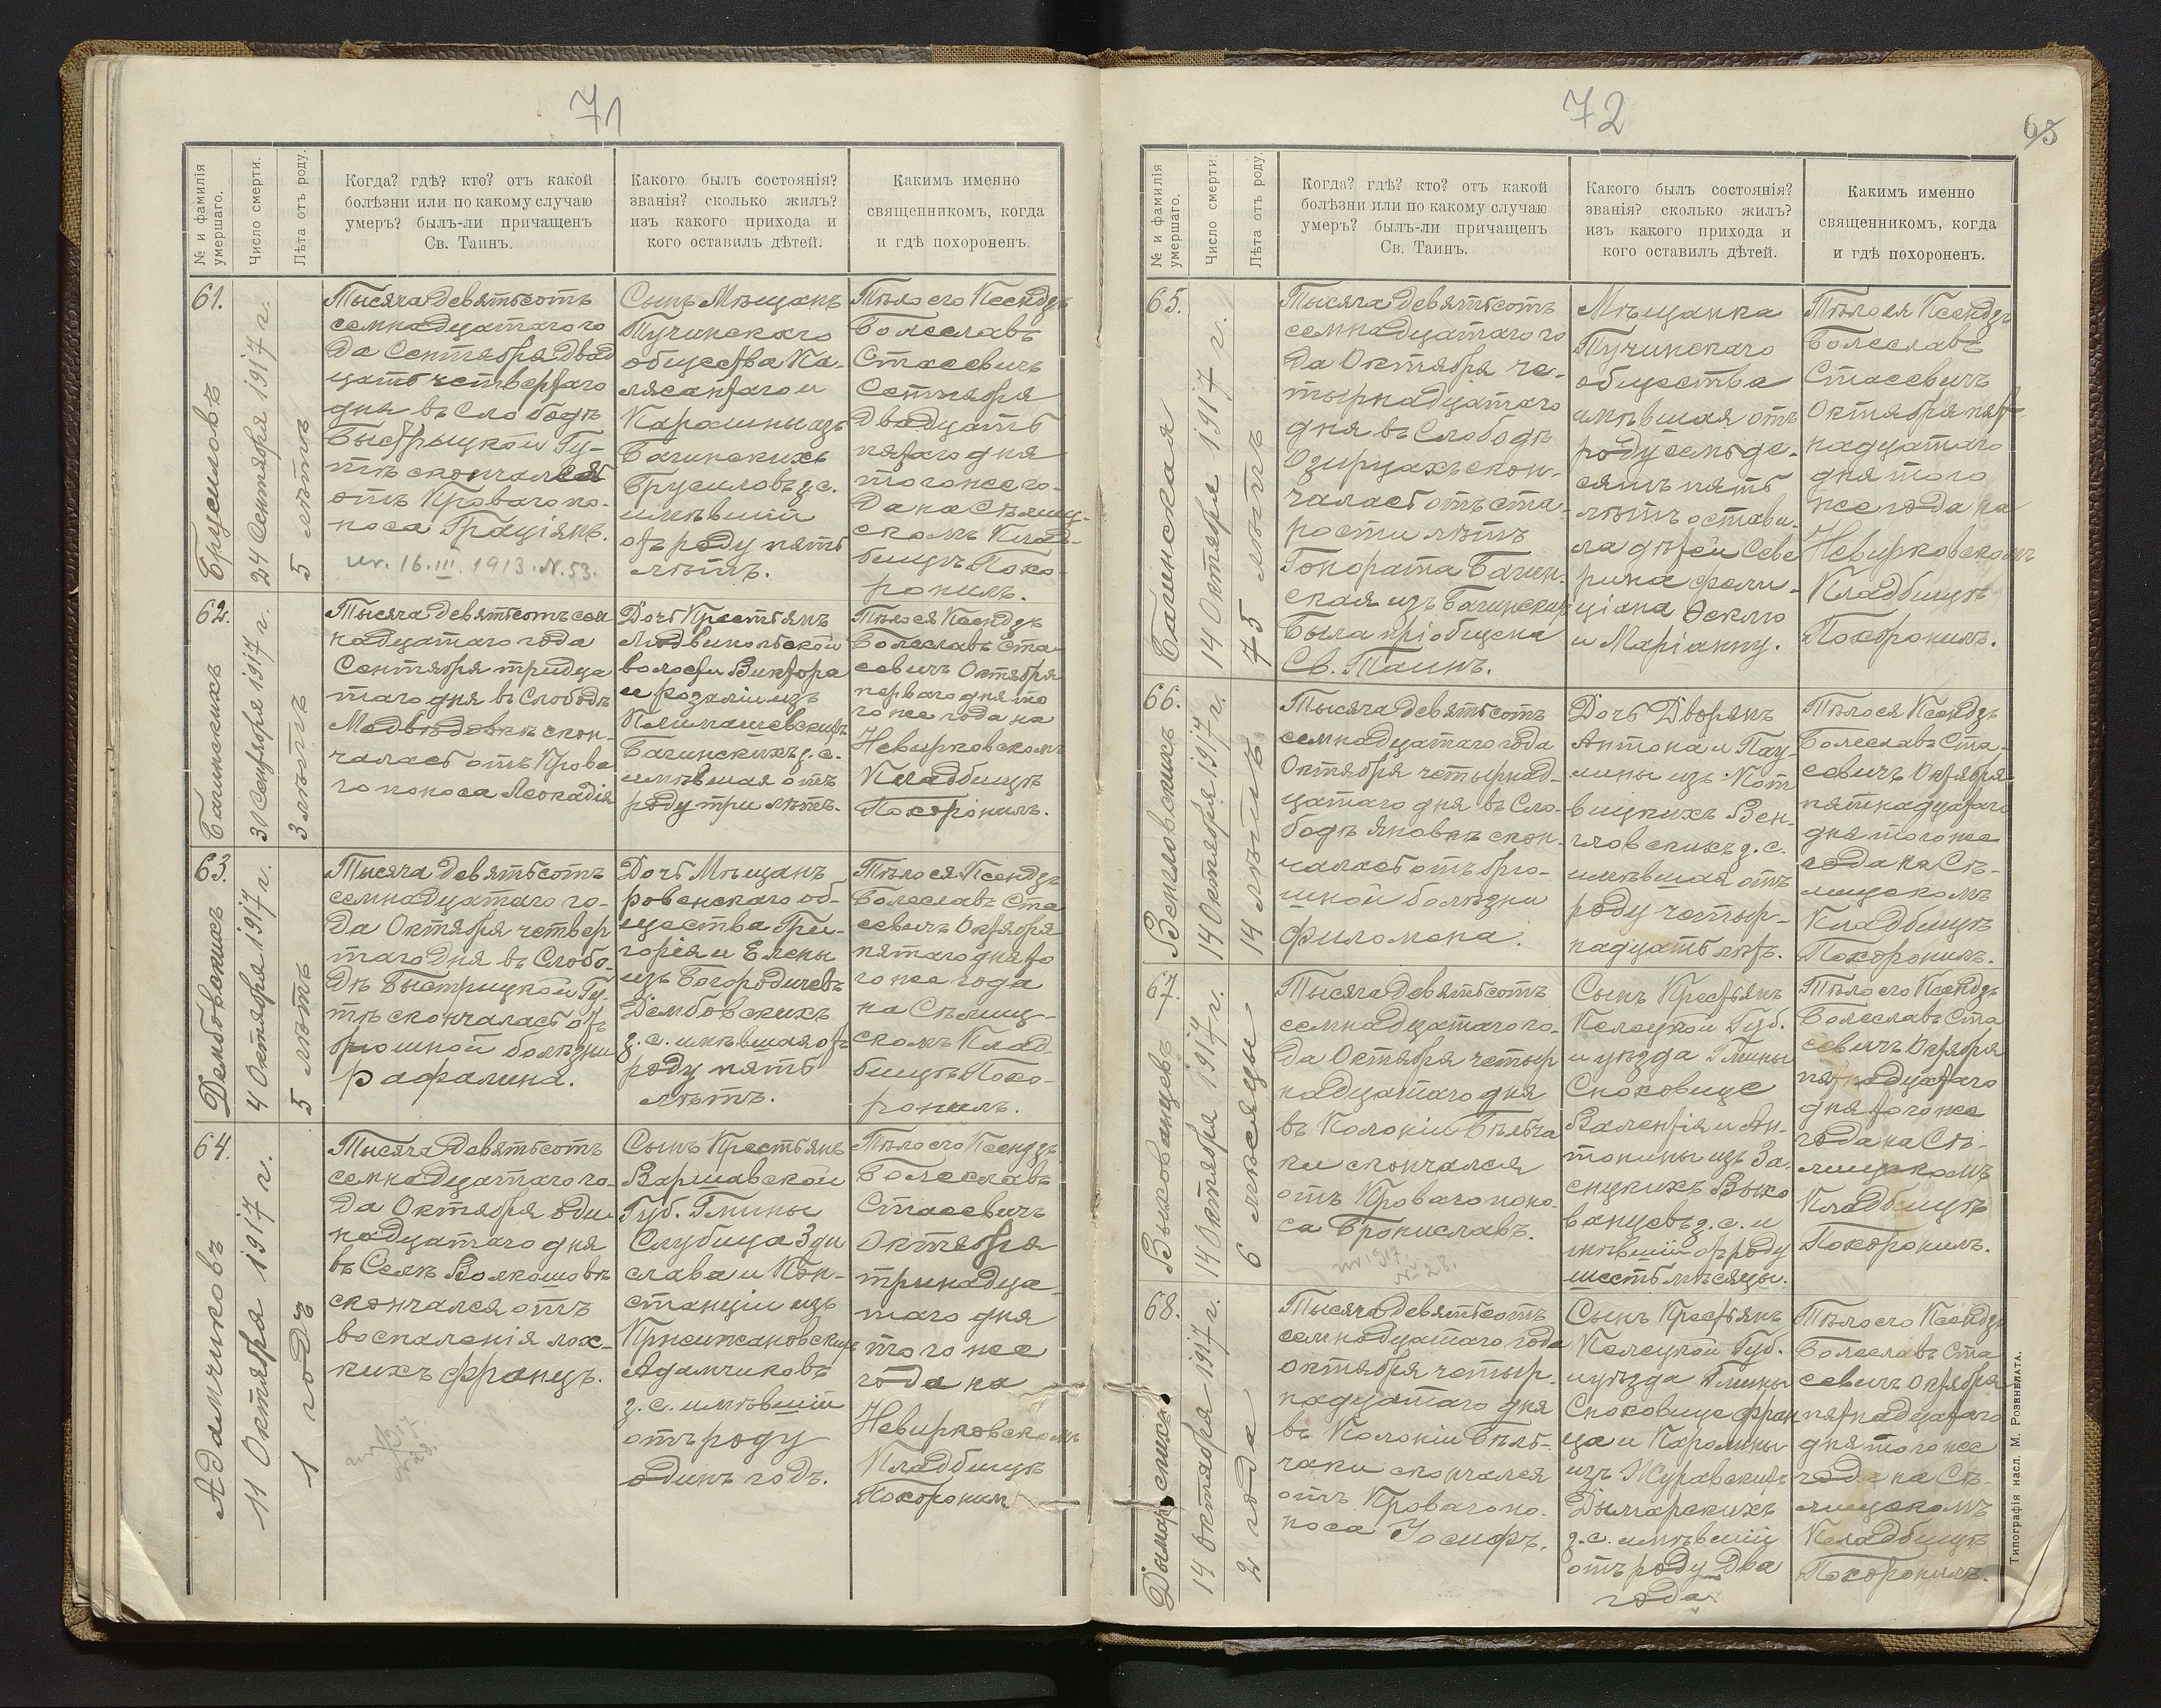 71
№ и фамилія
умершаго.
Число смерти.
Лѣта отъ роду.
Когда? гдѣ? кто? отъ какой
болѣзни или по какому случаю
умеръ? былъ-ли причащенъ
Св. Таинъ.
Какого былъ состоянія?
званія? сколько жилъ?
изъ какого прихода и
кого оставилъ дѣтей.
Какимъ именно
священникомъ, когда
и гдѣ похороненъ.
61.
Брусиловъ
24 Сентября 1917 г.
5 лѣтъ
Тысяча девятьсотъ
семнадцатаго го
да Сентября двад
цать четвертаго
дня въ Слободѣ
Быстрыцкой Гу-
тѣ скончался
отъ Кроваго по-
носа Граціянъ.
ur. 16.III.1913.N.53.
Сынъ Мѣщанъ
Тучинскаго
общества Ка-
лясантаго и
Каролины изъ
Багинскихъ
Брусиловъ з.с.
имѣвшій
отъ роду пять
лѣтъ.
Тѣло его Ксендзъ
Болеславъ
Стасевичъ
Сентября
двадцать
пятаго дня
того же го-
да на Сѣлищ-
скомъ Клад-
бищѣ Похо-
ронилъ.
62.
Багинскихъ
30 Сентября 1917 г.
3 лѣтъ
Тысяча девятьсотъ сем
надцатаго года
Сентября тридца
таго дня въ Слободѣ
Медвѣдовкѣ скон-
чалась отъ Крова
го поноса Леокадія
Дочь Крестьянъ
Людвипольской
волости Виктора
и Розаліи изъ
Климашевскихъ
Багинскихъ з.с.
имѣвшая отъ
роду три лѣтъ.
Тѣло ея Ксендзъ
Болеславъ Ста
севичъ Октября
перваго дня то
го же года на
Невирковскомъ
Кладбищѣ
Похоронилъ.
63.
Дембовскихъ
4 Октября 1917 г.
5 лѣтъ
Тысяча девятьсотъ
семнадцатаго го-
да Октября четвер
таго дня въ Слобо-
дѣ Быстрицкой Гу-
тѣ скончалась отъ
брюшной болѣзни
Рафалина.
Дочь Мѣщанъ
ровенскаго об-
щества Гри-
горія и Елены
изъ Богородичевъ
Дембовскихъ
з.с. имѣвшая отъ
роду пять
лѣтъ.
Тѣло ея Ксендзъ
Болеславъ Ста
севичъ Октября
пятаго дня то
го же года
на Сѣлищ-
скомъ Клад-
бищѣ Похо-
ронилъ.
64.
Адамчиковъ
11 Октября 1917 г.
1 годъ
Тысяча девятьсотъ
семнадцатаго го-
да Октября оди-
надцатаго дня
въ Селѣ Волкошовѣ
скончался отъ
воспаленія лох-
кихъ Францъ.
Сынъ Крестьянъ
Варшавской
Губ. Гмины
Слубица Зди
слава и Кон-
станціи изъ
Кржижановскихъ
Адамчиковъ
з.с. имѣвшій
отъ роду
одинъ годъ.
Тѣло его Ксендзъ
Болеславъ
Стасевичъ
Октября
тринадца-
таго дня
того же
года на
Невирковскомъ
Кладбищѣ
Похоронилъ
72
65
№ и фамилія
умершаго.
Число смерти.
Лѣта отъ роду.
Когда? гдѣ? кто? отъ какой
болѣзни или по какому случаю
умеръ? былъ-ли причащенъ
Св. Таинъ.
Какого былъ состоянія?
званія? сколько жилъ?
изъ какого прихода и
кого оставилъ дѣтей.
Какимъ именно
священникомъ, когда
и гдѣ похороненъ.
65.
Багинская
14 Октября 1917 г.
75 лѣтъ
Тысяча девятьсотъ
семнадцатаго го
да Октября че-
тырнадцатаго
дня въ Слободѣ
Озирцахъ скон-
чалась отъ ста-
рости лѣтъ
Гонората Багин-
ская изъ Багинскихъ
Была пріобщена
Св. Таинъ.
Мѣщанка
Тучинскаго
общества
имѣвшая отъ
роду семьде-
сятъ пять
лѣтъ остави-
ла дѣтей Севе
рина Фели-
ціана Феклю
и Маріанну.
Тѣло ея Ксендзъ
Болеславъ
Стасевичъ
Октября пят-
надцатаго
дня того
же года на
Невирковскомъ
Кладбищѣ
Похоронилъ.
66.
Венгловскихъ
14 Октября 1917 г.
14 лѣтъ
Тысяча девятьсотъ
семнадцатаго года
Октября четырнад-
цатаго дня въ Сло-
бодѣ Яновкѣ скон-
чалась отъ брю-
шной болѣзни
Филомена.
Дочь Дворянъ
Антона и Пау
лины изъ Кот
вицкихъ Вен-
гловскихъ з.с.
имѣвшая отъ
роду четыр-
надцать лѣтъ.
Тѣло ея Ксендзъ
Болеславъ Ста-
севичъ Октября
пятнадцатаго
дня того же
года на Сѣ-
лищскомъ
Кладбищѣ
Похоронилъ.
67.
Выкованцевъ
14 Октября 1917 г.
6 мѣсяцы
Тысяча девятьсотъ
семнадцатаго го-
да Октября четыр
надцатаго дня
въ Колоніи Бѣльча
ки скончался
отъ Кроваго поно-
са Брониславъ.
ur. 1917.
№ 28.
Сынъ Крестьянъ
Келецкой Губ.
и уѣзда Гмины
Снохович
Валентія и Ан-
тонины изъ За-
сицкихъ Выко
ванцевъ з.с. и
мѣвшій отъ роду
шесть мѣсяцы.
Тѣло его Ксендзъ
Болеславъ Ста
севичъ Октября
пятнадцатаго
дня того же
года на Сѣ-
лищскомъ
Кладбищѣ
Похоронилъ.
68.
Дымарскихъ
14 Октября 1917 г.
2 года
Тысяча девятьсотъ
семнадцатаго года
октября четыр-
надцатаго дня
въ Колоніи Бѣль-
чаки скончался
отъ Кроваго по-
носа Іосифъ.
Сынъ Крестьянъ
Келецкой Губ.
и уѣзда Гмины
Сноховице Фран
ца и Каролины
изъ Журавскихъ
Дымарскихъ
з.с. имѣвшій
отъ роду два
года.
Тѣло его Ксендзъ
Болеславъ Ста
севичъ Октября
пятнадцатаго
дня того же
года на Сѣ-
лищскомъ
Кладбищѣ
Похоронилъ.
Типографія насл. М. Розенблата.